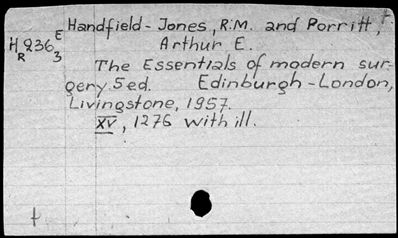 Handfield-Jones, R.M. and Porritt,
Arthur E.
HR 236 E3
The Essentials of modern sur-
gery. 5 ed. Edinburgh-London,
Livingstone, 1957.
XV, 1276 with ill.